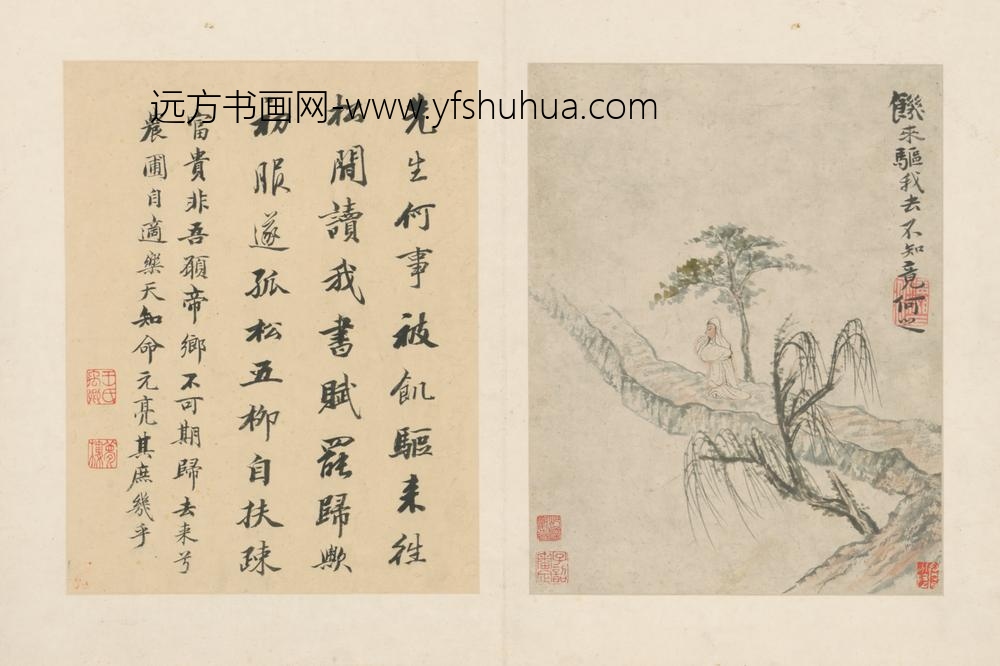 远方书画网-www.yfshuhua.com
饑来驅我去不知竟何之
先生何事被飢驅来往
松間讀我書賦罷歸歟
初服遂孤松五柳自扶疎
富貴非吾願帝鄉不可期歸去来兮
農圃自適樂天知命元亮其庶幾乎